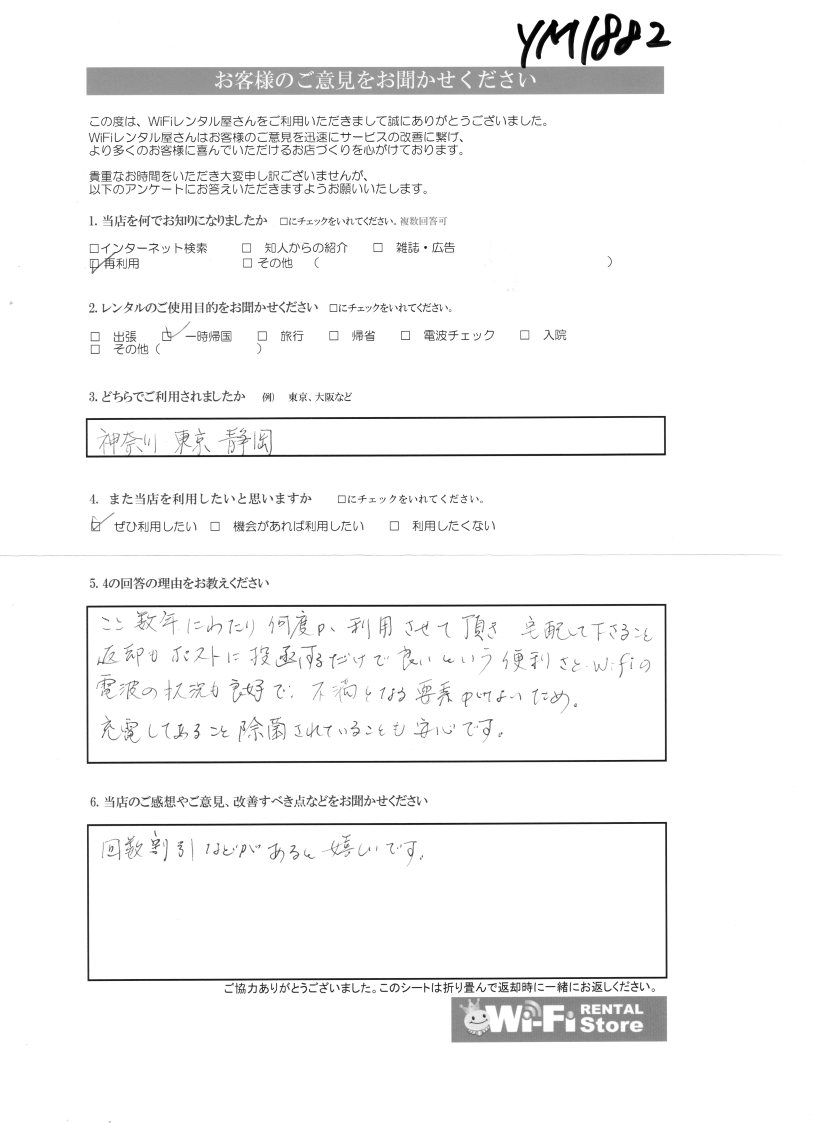 YM1882
お客様のご意見をお聞かせください
この度は、WiFiレンタル屋さんをご利用いただきまして誠にありがとうございました。
WiFiレンタル屋さんはお客様のご意見を迅速にサービスの改善に繋げ、
より多くのお客様に喜んでいただけるお店づくりを心がけております。
貴重なお時間をいただき大変申し訳ございませんが、
以下のアンケートにお答えいただきますようお願いいたします。
1. 当店を何でお知りになりましたか □にチェックをいれてください。複数回答可
□インターネット検索 □ 知人からの紹介 □ 雑誌・広告
☑再利用 □ その他 ( )
2. レンタルのご使用目的をお聞かせください □にチェックをいれてください。
□ 出張 ☑ 一時帰国 □ 旅行 □ 帰省 □ 電波チェック □ 入院
□ その他 ( )
3. どちらでご利用されましたか 例) 東京、大阪など
神奈川 東京 静岡
4. また当店を利用したいと思いますか □にチェックをいれてください。
☑ ぜひ利用したい □ 機会があれば利用したい □ 利用したくない
5. 4の回答の理由をお教えください
ここ数年にわたり何度か利用させて頂き 宅配して下さること
返却もポストに投函するだけで良いという便利さと wifiの
電波の状況も良好で、不満となる要素がないため。
充電してあること除菌されていることも安心です。
6. 当店のご感想やご意見、改善すべき点などをお聞かせください
回数割引などがあると嬉しいです。
ご協力ありがとうございました。このシートは折り畳んで返却時に一緒にお返しください。
Wi-Fi RENTAL Store